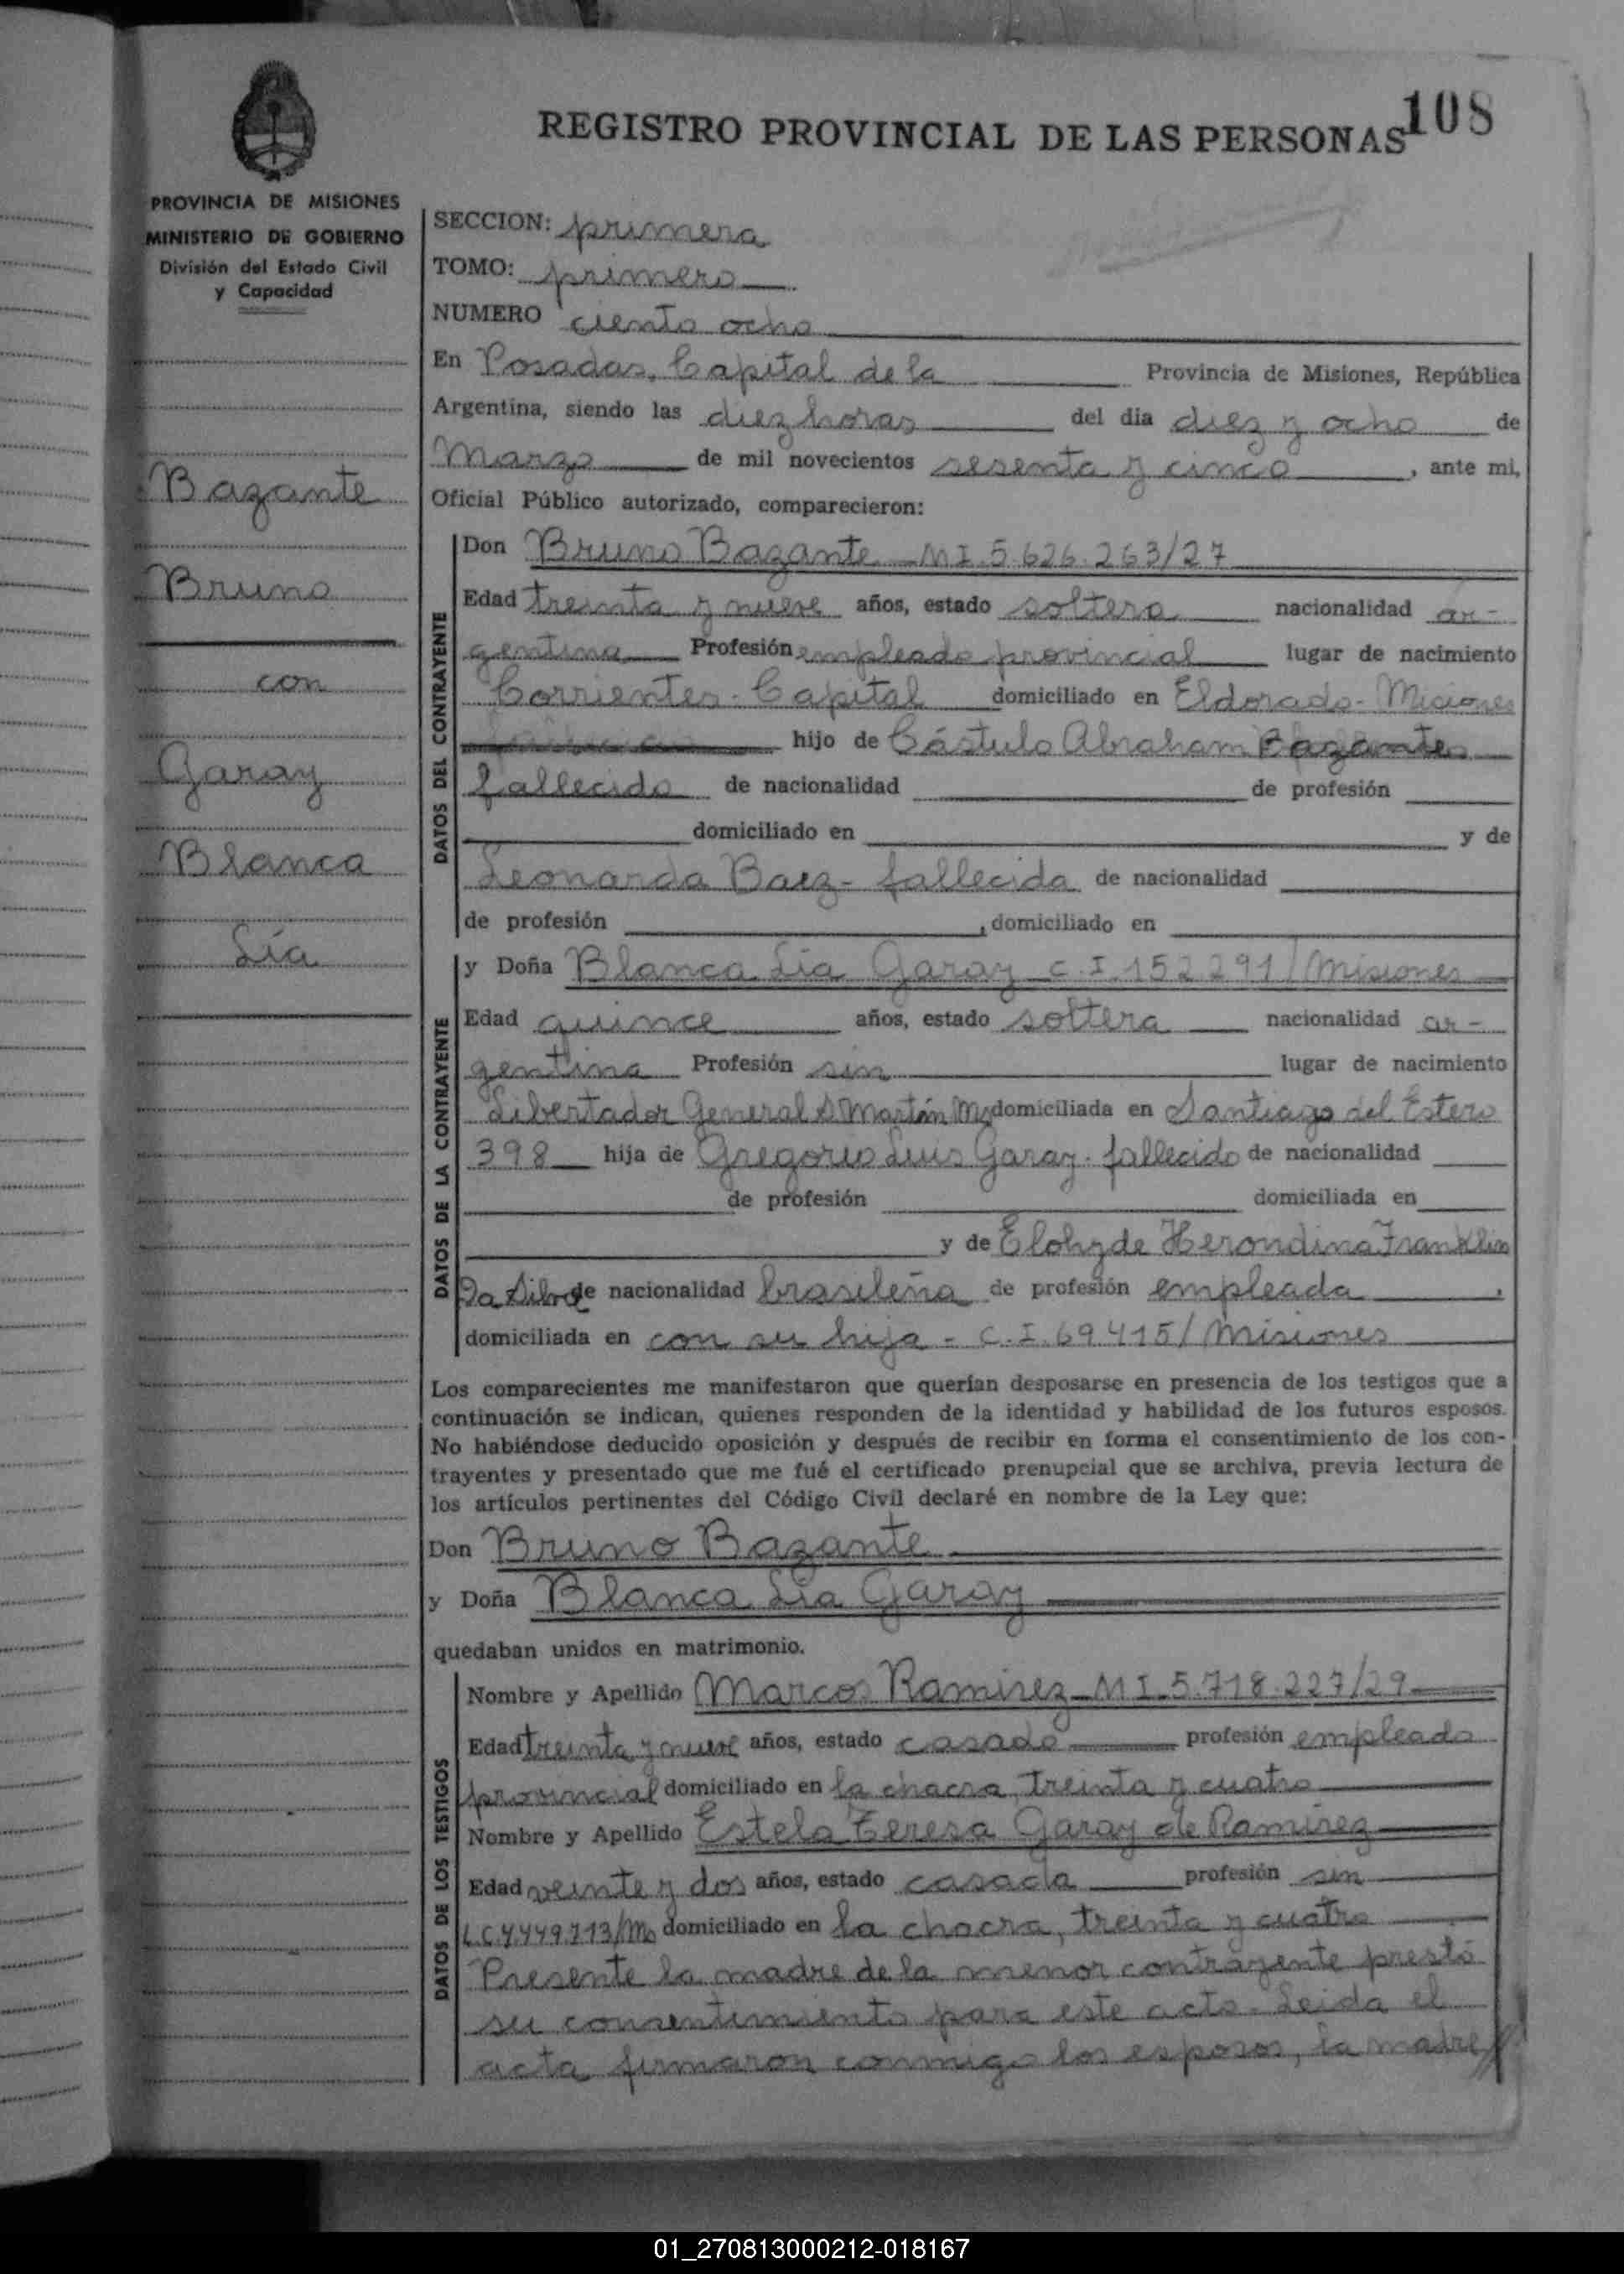 108
REGISTRO PROVINCIAL DE LAS PERSONAS
PROVINCIA DE MISIONES
MINISTERIO DE GOBIERNO
División del Estado Civil
y Capacidad
Bazante
Bruno
con
Garay
Blanca
Lía
SECCION: primera
TOMO: primero
NUMERO ciento ocho
En Posadas, Capital de la Provincia de Misiones, República
Argentina, siendo las diez horas del dia diez y ocho de
Marzo de mil novecientos sesenta y cinco, ante mi,
Oficial Público autorizado, comparecieron:
DATOS DEL CONTRAYENTE
Don Bruno Bazante MI. 5.626.263/27
Edad treinta y nueve años, estado soltero nacionalidad ar-
gentina Profesión empleado provincial lugar de nacimiento
Corrientes - Capital domiciliado en Eldorado - Misiones
hijo de Cástulo Abraham Bazante
fallecido de nacionalidad de profesión
domiciliado en y de
Leonarda Baez - fallecida de nacionalidad
de profesión , domiciliado en
DATOS DE LA CONTRAYENTE
y Doña Blanca Lía Garay C.I. 152.291/Misiones
Edad quince años, estado soltera nacionalidad ar-
gentina Profesión sin lugar de nacimiento
Libertador General S. Martín Ms domiciliada en Santiago del Estero
398 hija de Gregorio Luis Garay - fallecido de nacionalidad
de profesión domiciliada en
y de Elohyde Herondina Franklin
Da Silva de nacionalidad brasileña de profesión empleada,
domiciliada en con su hija - C.I. 69.415/Misiones
Los comparecientes me manifestaron que querían desposarse en presencia de los testigos que a
continuación se indican, quienes responden de la identidad y habilidad de los futuros esposos.
No habiéndose deducido oposición y después de recibir en forma el consentimiento de los con-
trayentes y presentado que me fué el certificado prenupcial que se archiva, previa lectura de
los artículos pertinentes del Código Civil declaré en nombre de la Ley que:
Don Bruno Bazante
y Doña Blanca Lía Garay
quedaban unidos en matrimonio.
DATOS DE LOS TESTIGOS
Nombre y Apellido Marcos Ramirez MI. 5.718.227/29
Edad treinta y nueve años, estado casado profesión empleado
provincial domiciliado en la chacra, treinta y cuatro
Nombre y Apellido Estela Teresa Garay de Ramirez
Edad veinte y dos años, estado casada profesión sin
L.C. 4.449.713/Ms domiciliado en la chacra, treinta y cuatro
Presente la madre de la menor contrayente prestó
su consentimiento para este acto. Leida el
acta, firmaron conmigo los esposos, la madre//
01_270813000212-018167